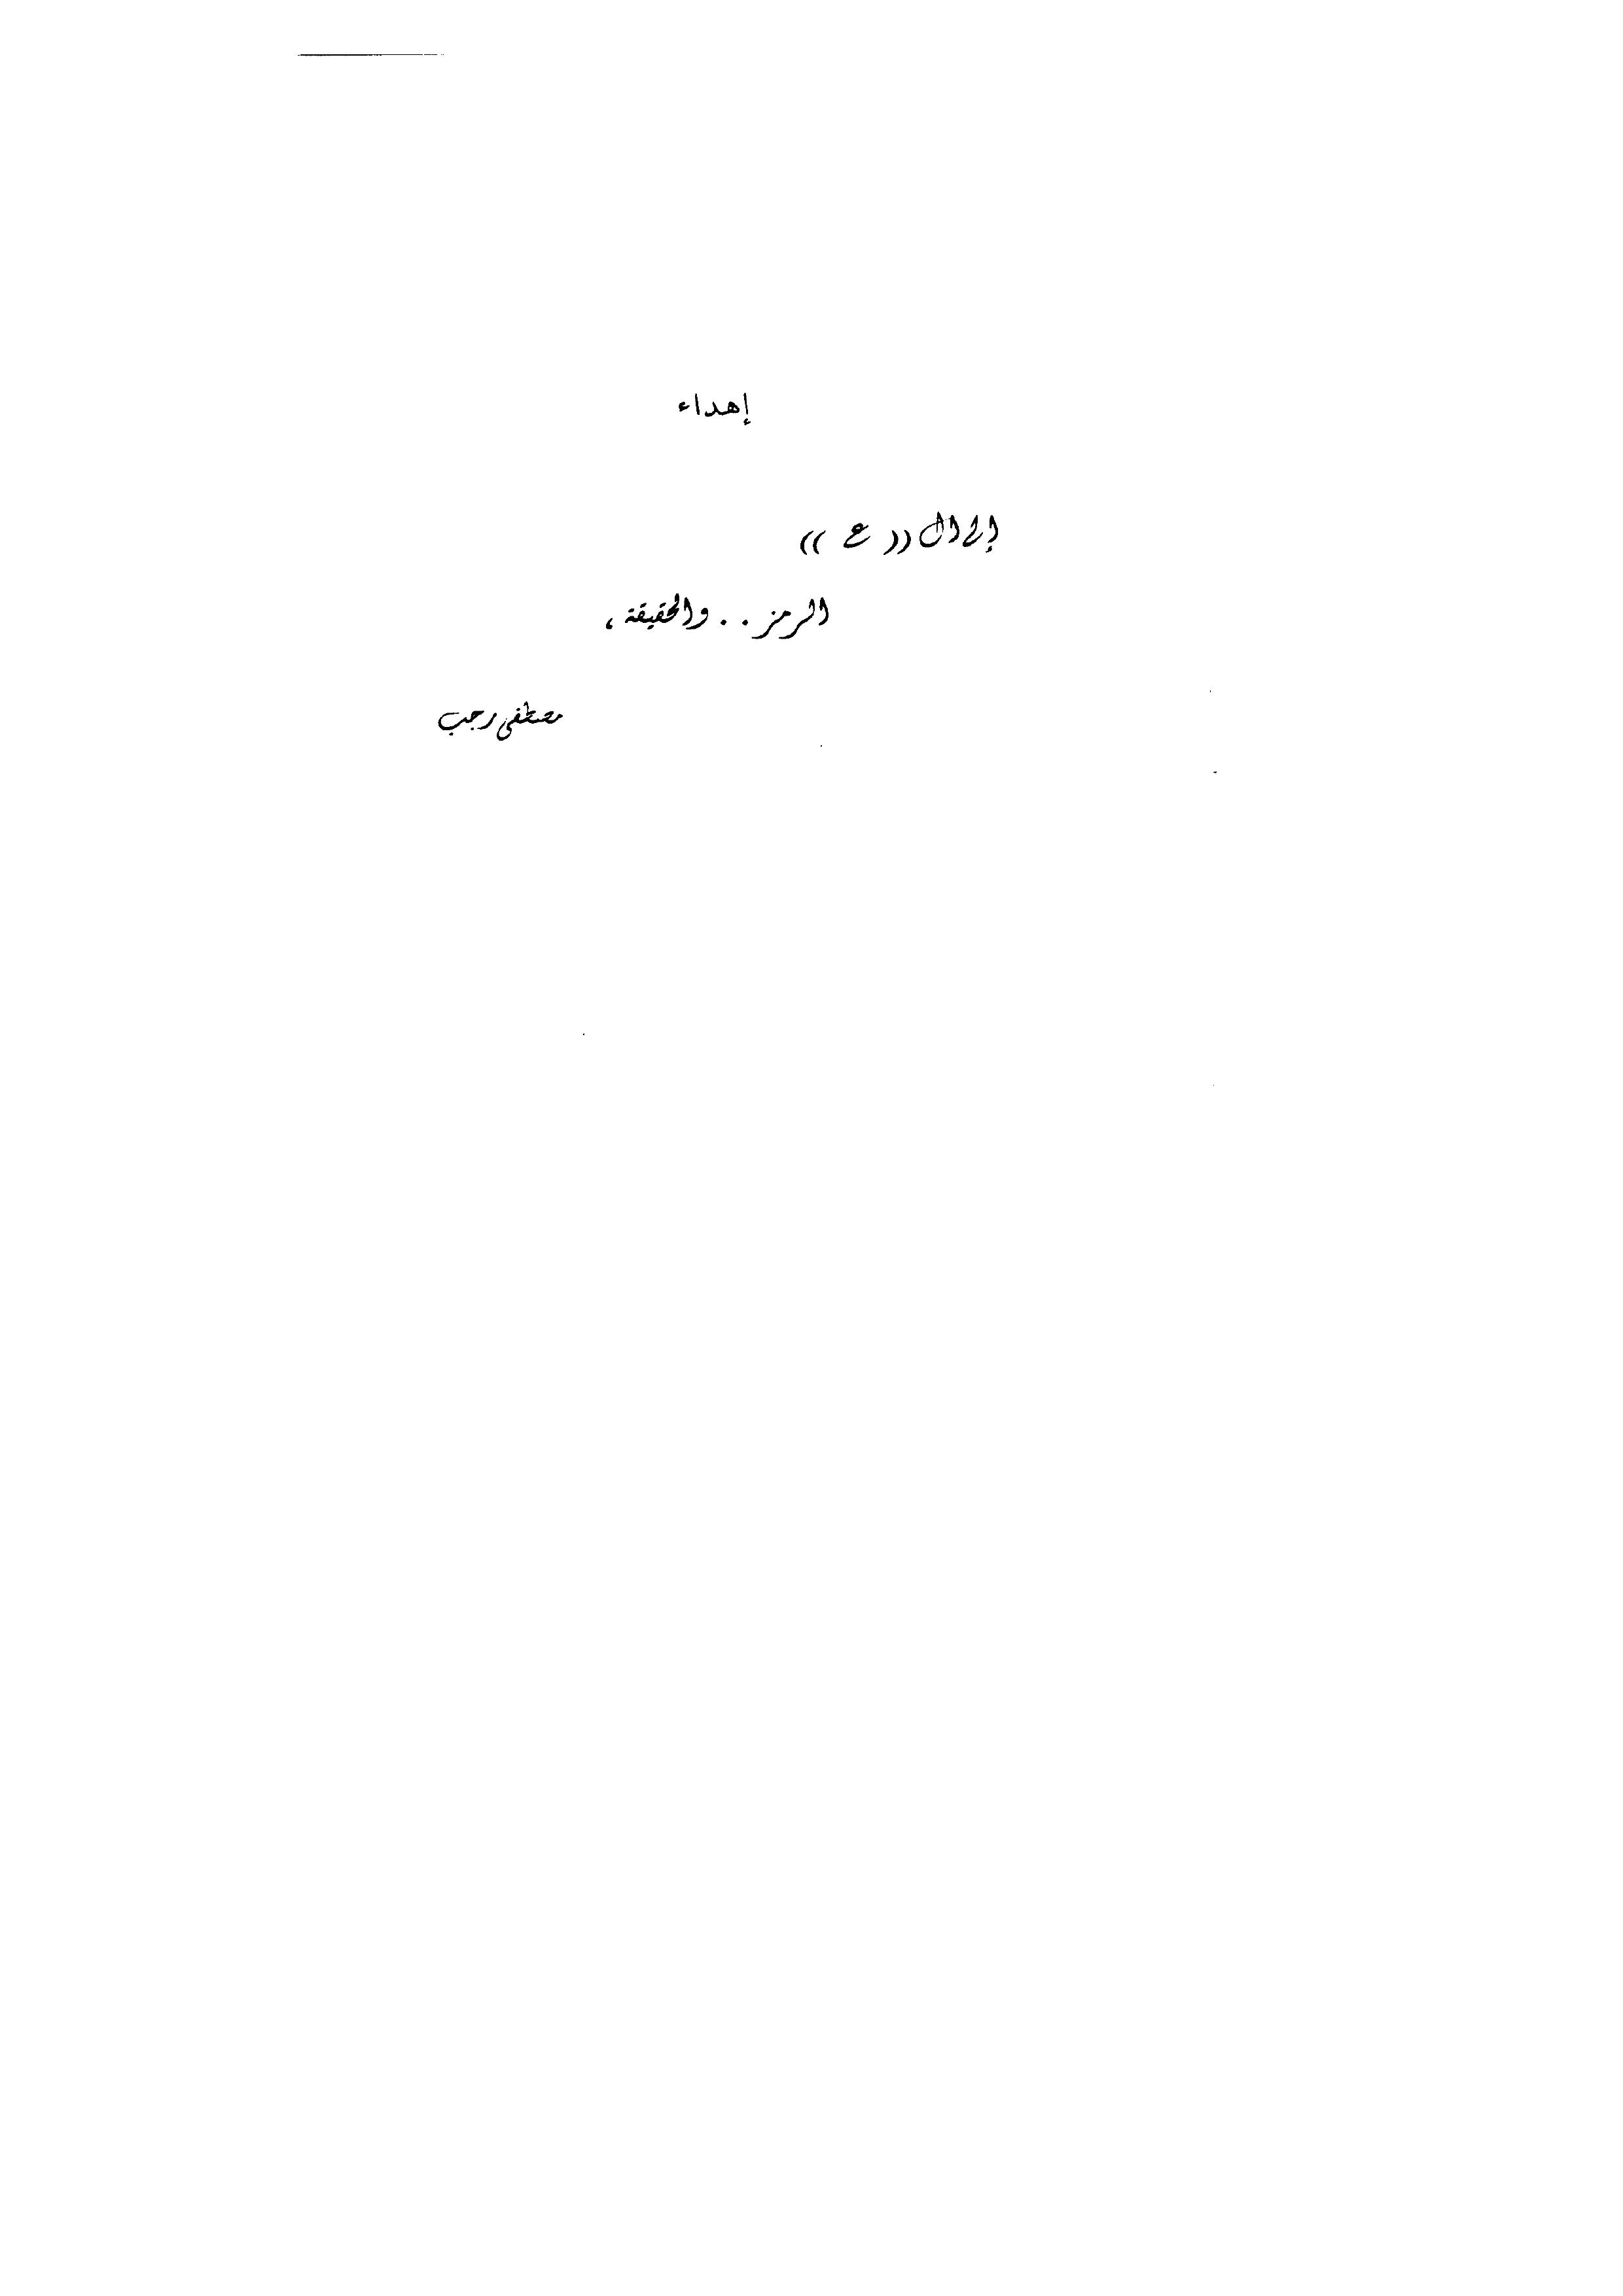 إهداء
إلى ال (( ع ))
الرمز . . والحقيقة ،
مصطفى رجب